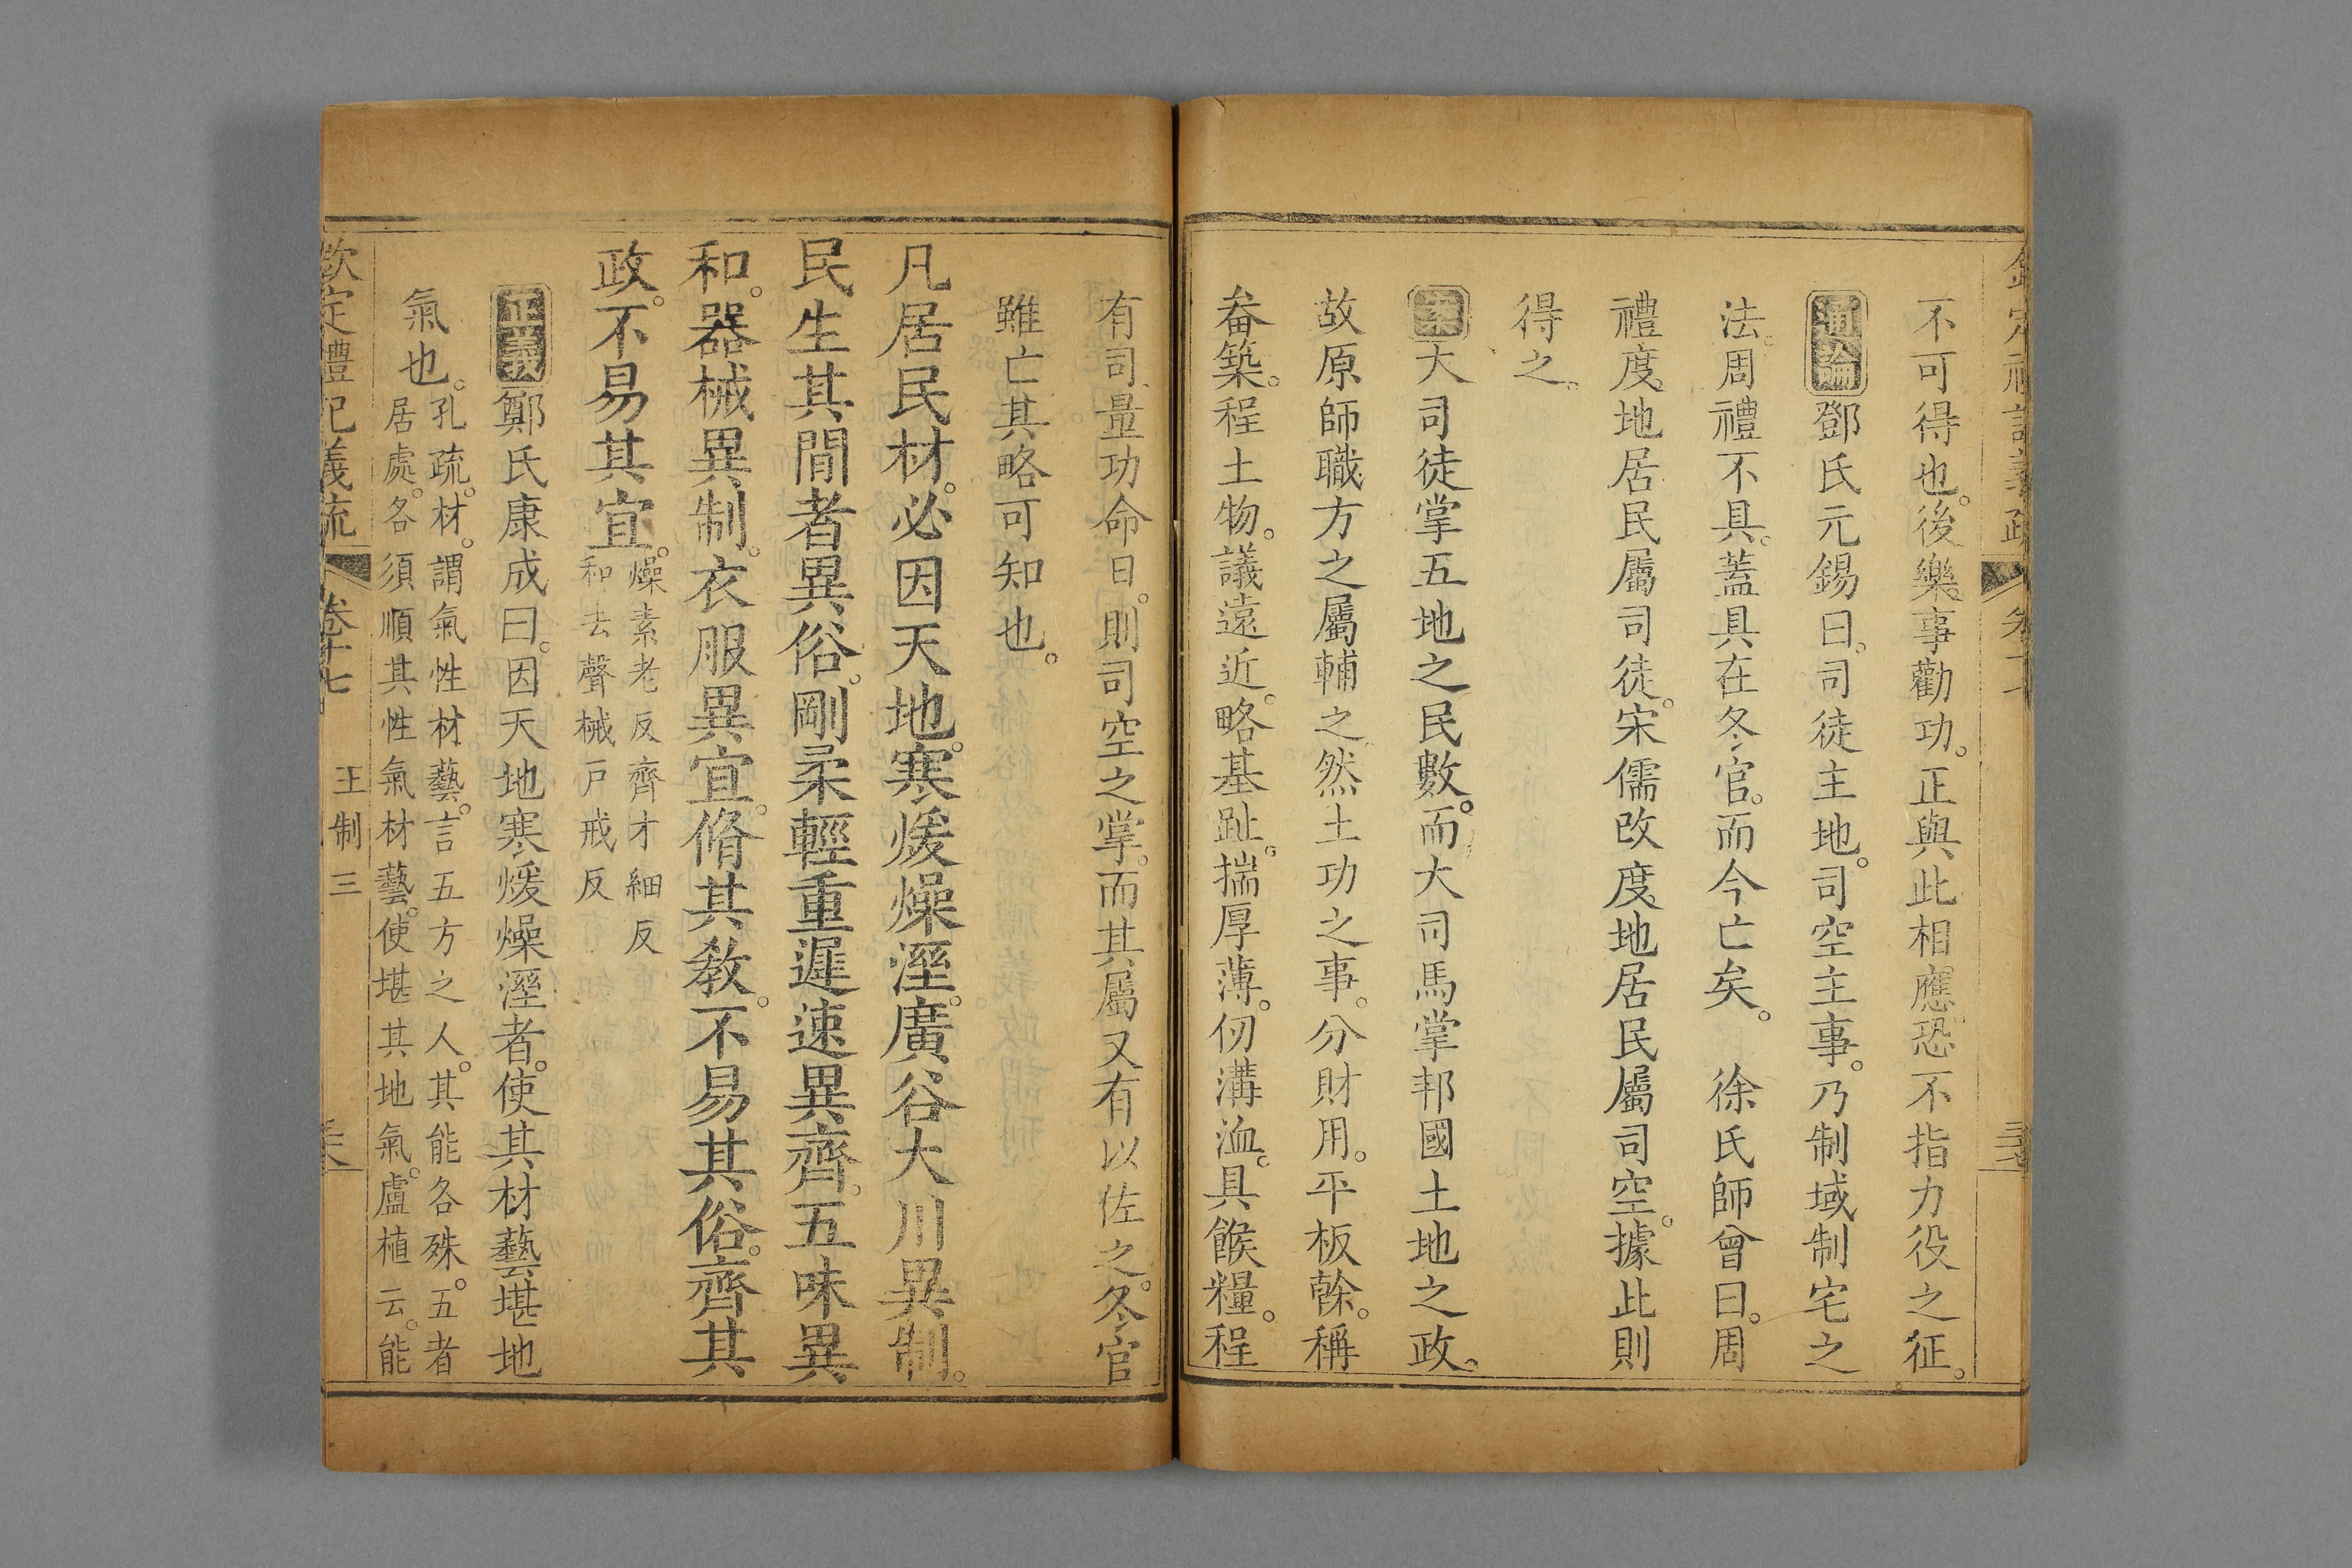 不可得也。後樂事勸功。正與此相應。恐不指力役之征。
通論鄧氏元錫曰。司徒主地。司空主事。乃制域制宅之
法。周禮不具。蓋具在冬官。而今亡矣。 徐氏師曾曰。周
禮度地居民屬司徒。宋儒改度地居民屬司空。據此則
得之。
案大司徒掌五地之民數。而大司馬掌邦國土地之政。
故原師職方之屬輔之然土功之事。分財用。平板榦。稱
畚築。程土物。議遠近。略基趾。揣厚薄。仞溝洫。具餱糧。程
有司。量功命日。則司空之掌。而其屬又有以佐之。冬官
雖亡其略可知也。
凡居民材。必因天地。寒煖燥溼。廣谷大川異制。
民生其間者異俗。剛柔輕重遲速異齊。五味異
和。器械異制。衣服異宜。脩其敎。不易其俗。齊其
政。不易其宜。燥素老反齊才細反
和去聲械戸戒反
正義鄭氏康成曰。因天地寒煖燥溼者。使其材藝堪地
氣也。孔疏。材。謂氣性材藝。言五方之人。其能各殊。五者
居處。各須順其性氣材藝。使堪其地氣。盧植云。能
欽定禮記義疏 卷十七 王制三